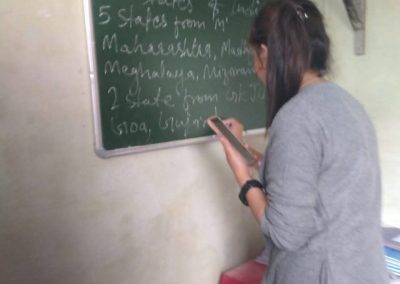 States of
5 States from 'M'
Maharashtra,
Meghalaya, Mizoram
2 state from
Goa, Gujar